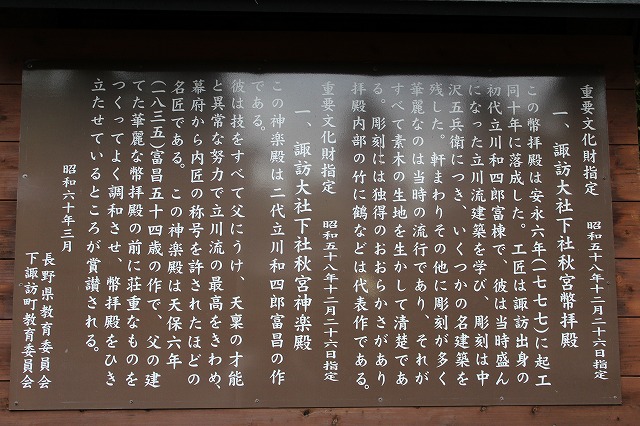 重要文化財指定　昭和五十八年十二月二十六日指定
一、諏訪大社下社秋宮幣拝殿
この幣拝殿は安永六年（一七七七）に起工
同十年に落成した。工匠は諏訪出身の
初代立川和四郎富棟で、彼は当時盛ん
になった立川流建築を学び、彫刻は中
沢五兵衛につき、いくつかの名建築を
残した。軒まわりその他に彫刻が多く
華麗なのは当時の流行であり、それが
すべて素木の生地を生かして清楚であ
る。彫刻には独得のおおらかさがあり
拝殿内部の竹に鶴などは代表作である。
重要文化財指定　昭和五十八年十二月二十六日指定
一、諏訪大社下社秋宮神楽殿
この神楽殿は二代立川和四郎富昌の作
である。
彼は技をすべて父にうけ、天稟の才能
と異常な努力で立川流の最高をきわめ、
幕府から内匠の称号を許されたほどの
名匠である。この神楽殿は天保六年
（一八三五）富昌五十四歳の作で、父の建
てた華麗な幣拝殿の前に荘重なものを
つくってよく調和させ、幣拝殿をひき
立たせているところが賞讃される。
昭和六十年三月
長野県教育委員会
下諏訪町教育委員会